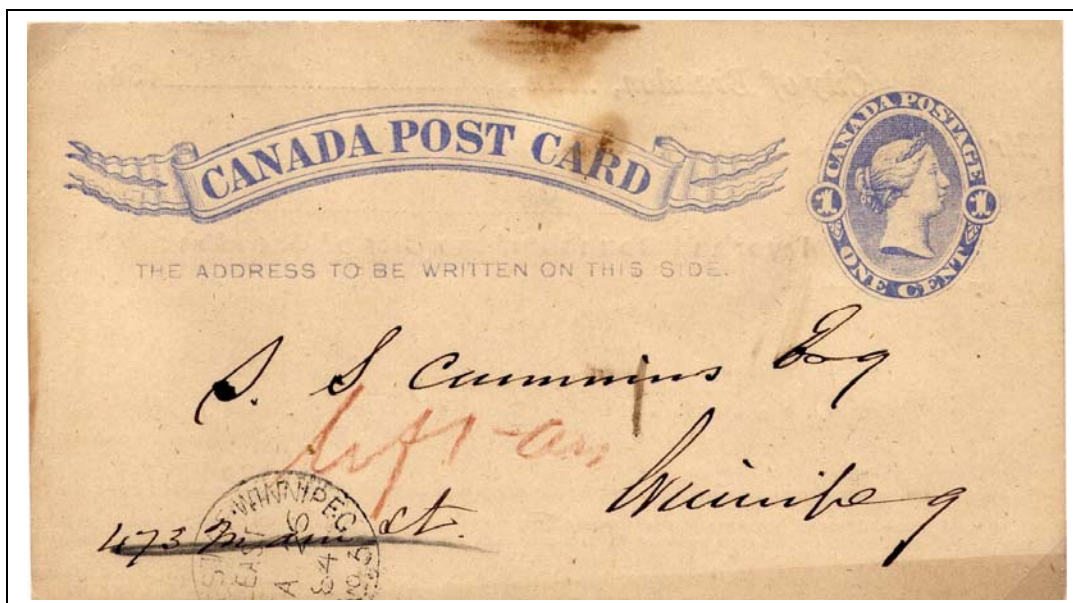 CANADA POST CARD
CANADA POSTAGE
1 1
ONE CENT
THE ADDRESS TO BE WRITTEN ON THIS SIDE.
S. S Cummins Esq
left-
Winnipeg
473 Main St.
WINNIPEG
EAST
26
84